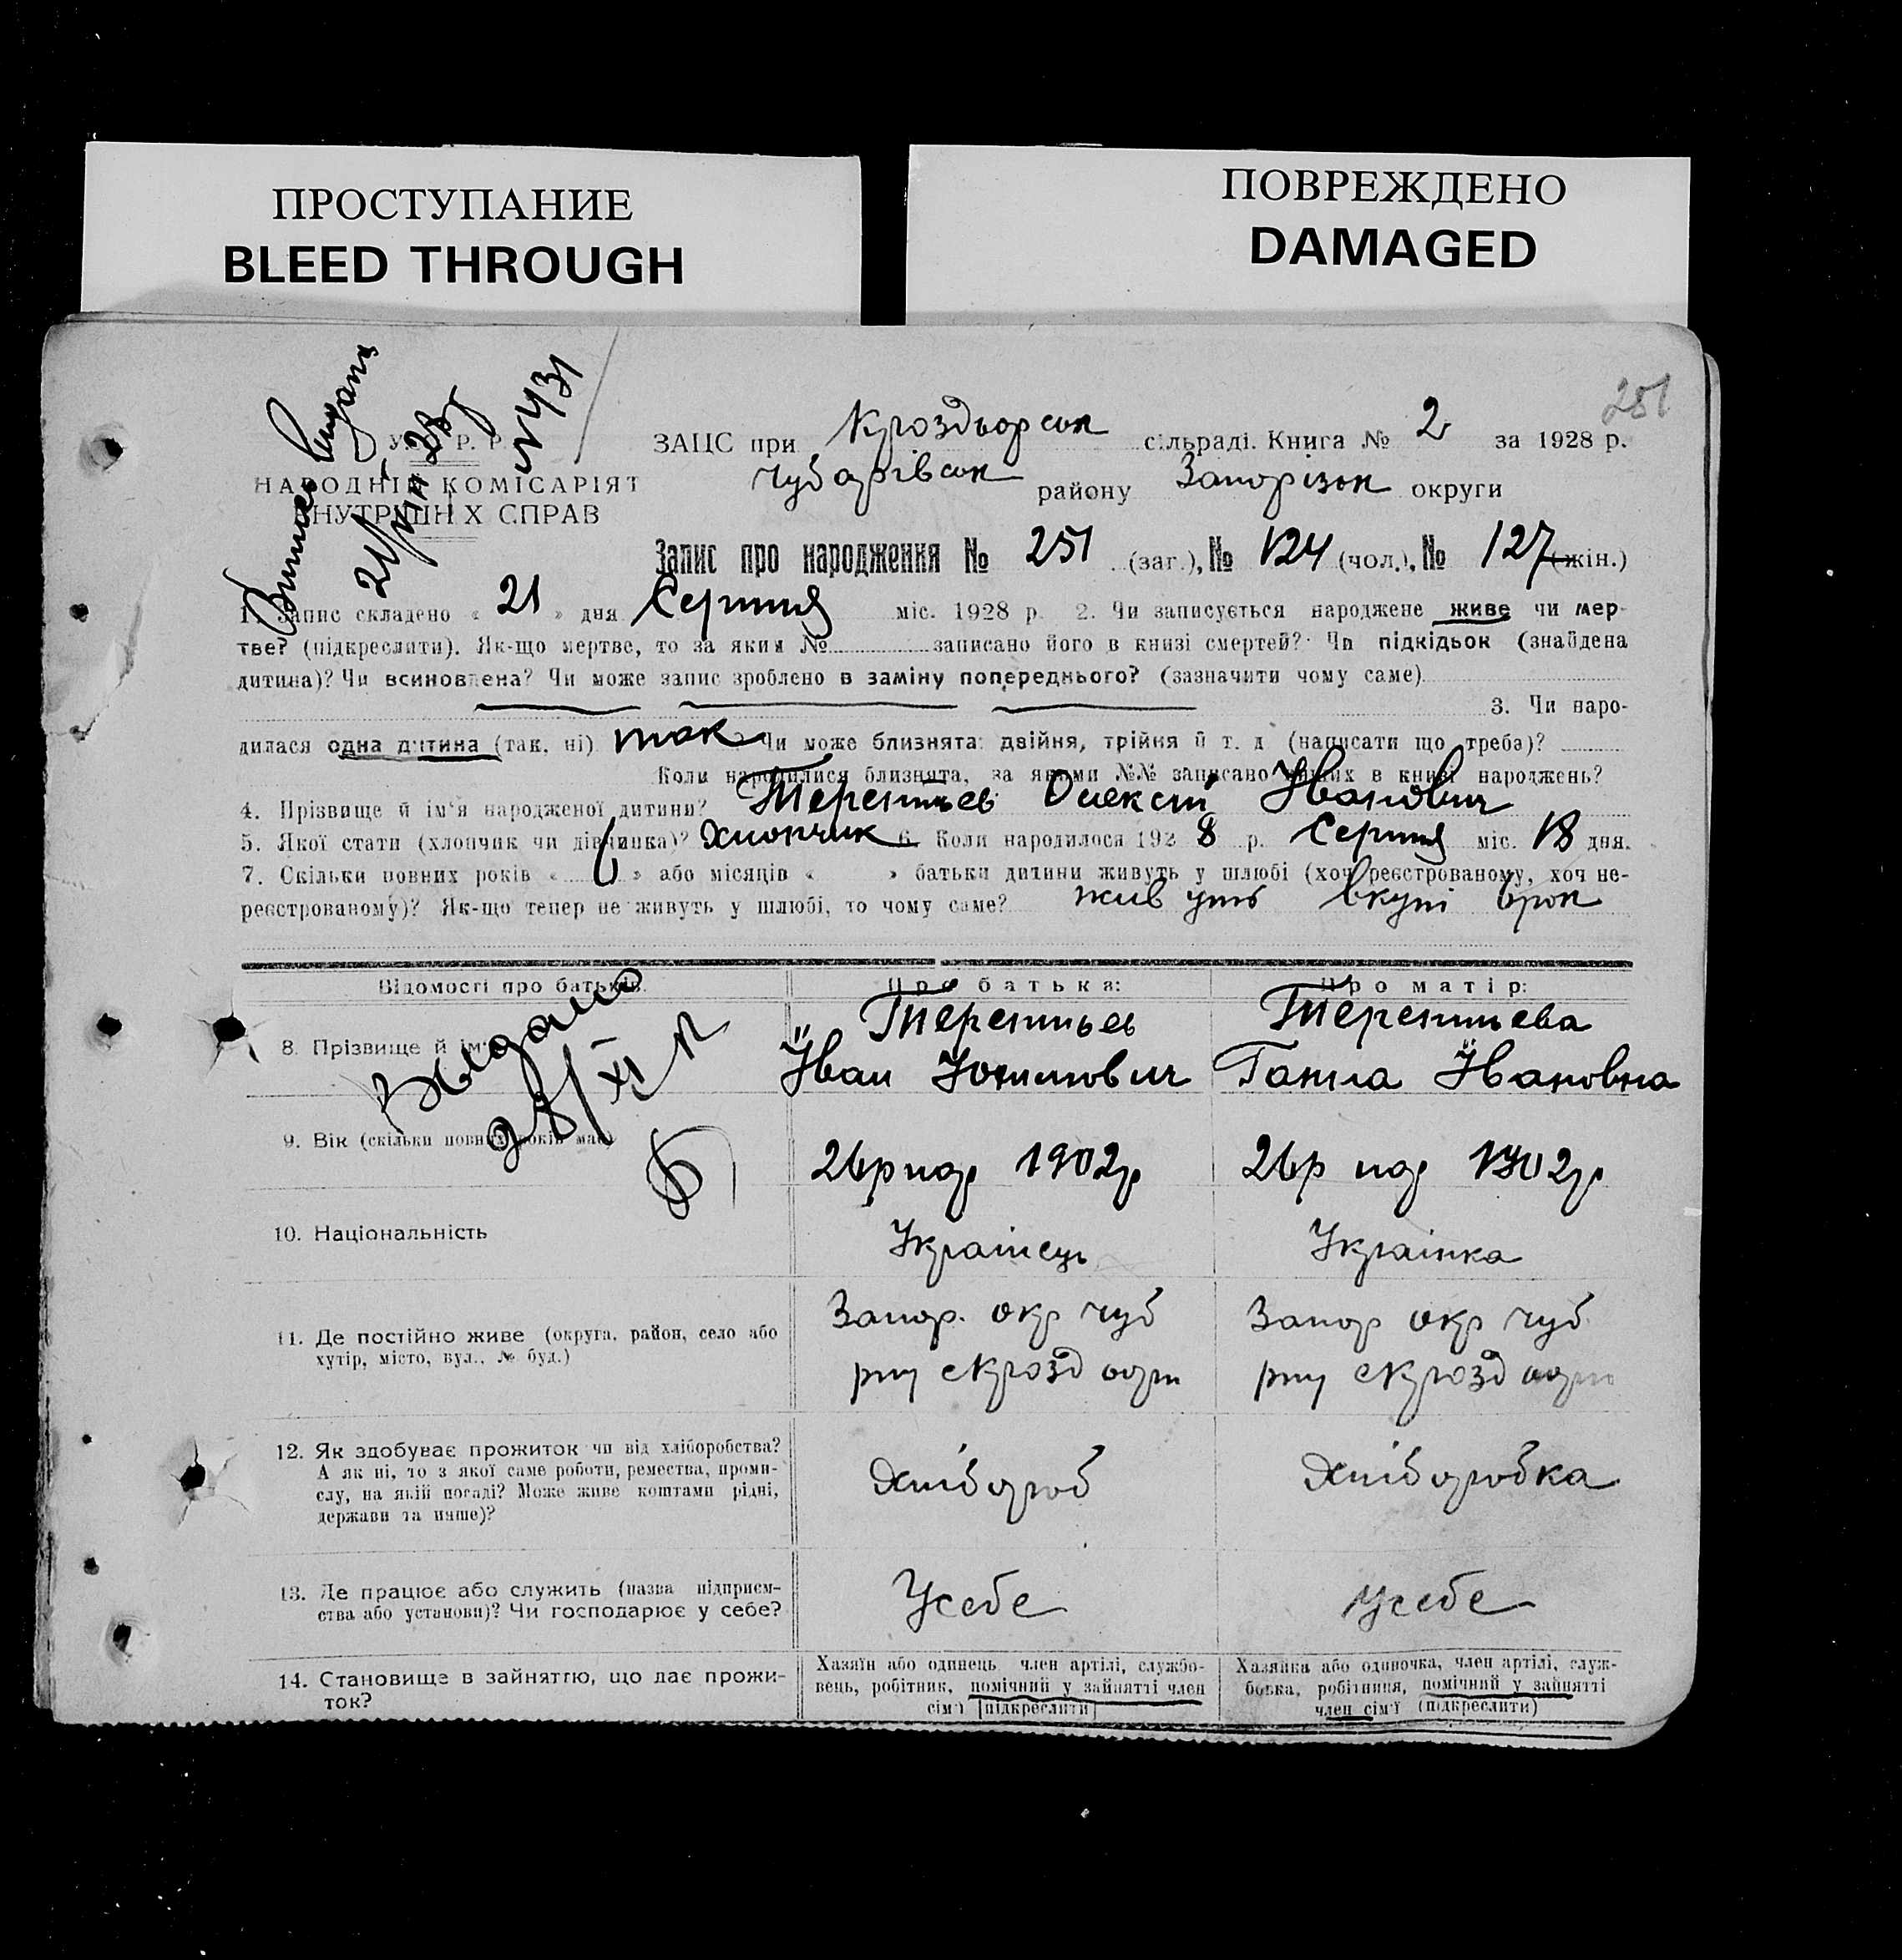 ПРОСТУПАНИЕ
BLEED THROUGH
ПОВРЕЖДЕНО
DAMAGED
251
№431
У. Р. Р.
НАРОДНІЙ КОМІСАРІЯТ
ВНУТРІШНІХ СПРАВ
ЗАЦС при сільраді. Книга № 2 за 1928 р.
Чубарівськ району Запорізьк округи
Запис про народження № 251 (заг.), № 124 (чол.), № 127 (жін.)
1. Запис складено « 21 » дня Серпня міс. 1928 р. 2. Чи записується народжене живе чи мер-
тве? (підкреслити). Як-що мертве, то за яким № записано його в книзі смертей? Чи підкідьок (знайдена
дитина)? Чи всиновлена? Чи може запис зроблено в заміну попереднього? (зазначити чому саме)
3. Чи наро-
дилася одна дитина (так, ні) так Чи може близнята: двійня, трійня й т. д (написати що треба)?
Коли народилися близнята, за якими №№ записано інших в книзі народжень?
4. Прізвище й ім'я народженої дитини? Терентьев Олексій Іванович
5. Якої стати (хлопчик чи дівчинка)? Хлопчик 6. Коли народилося 192 8 р. Серпня міс. 18 дня.
7. Скільки повних років « 6 » або місяців « » батьки дитини живуть у шлюбі (хоч реєстрованому, хоч не-
реєстрованому)? Як-що тепер не живуть у шлюбі, то чому саме? живуть вкупі
Відомості про батьків. Про батька: Про матір:
Выдано
8. Прізвище й ім'я Терентьев Терентьева
Іван Юхимович Ганна Івановна
9. Вік (скільки повних років має) 26р нар 1902р 26р нар 1902р
10. Національність Українець Українка
11. Де постійно живе (округа, район, село або
хутір, місто, вул., № буд.)
Запор. окр Чуб Запор окр Чуб
12. Як здобуває прожиток чи від хліборобства?
А як ні, то з якої саме роботи, ремества, проми-
слу, на якій посаді? Може живе коштами рідні,
держави та инше)?
Хлібороб Хліборобка
13. Де працює або служить (назва підприєм-
ства або установи)? Чи господарює у себе?
Усебе Усебе
14. Становище в зайняттю, що дає прожи-
ток?
Хазяїн або одинець член артілі, службо-
вець, робітник, помічний у зайнятті член
сім'ї (підкреслити)
Хазяйка або одиночка, член артілі, служ-
бовка, робітниця, помічний у зайнятті
член сім'ї (підкреслити)